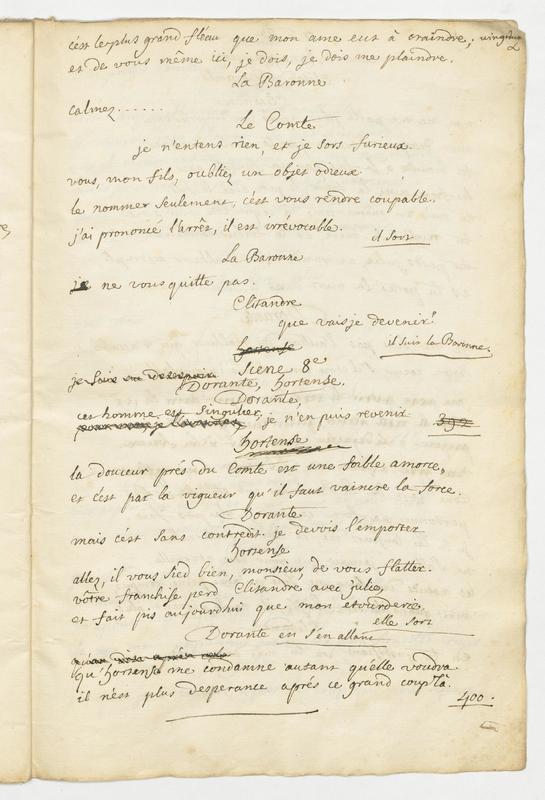 c'est le plus grand fléau que mon ame eut à craindre;
et de vous même ici, je dois, je dois me plaindre.
La Baronne
calmez......
Le Comte
je n'entens rien, et je sors furieux.
vous, mon fils, oubliez un objet odieux
le nommer seulement, c'est vous rendre coupable.
j'ai prononcé l'arrêt, il est irrévocable.
il sort
La Baronne
je ne vous quitte pas.
Clitandre
que vais je devenir?
il suit la Baronne.
hortense
je suis au desespoir
Scene 8e
Dorante, hortense.
Dorante,
cet homme est singulier, je n'en puis revenir
392
hortense
la douceur prés du Comte est une foible amorce,
et c'est par la vigueur qu'il faut vaincre la force.
Dorante
mais c'est sans contredit. je devois l'emporter
hortense
allez, il vous sied bien, monsieur, de vous flatter.
vôtre franchise perd Clitandre avec julie,
et fait pis aujourdhui que mon etourderie.
elle sort
Dorante en s'en allant
qu'hortense me condamne autant qu'elle voudra
il n'est plus desperance aprés ce grand coup là.
400.